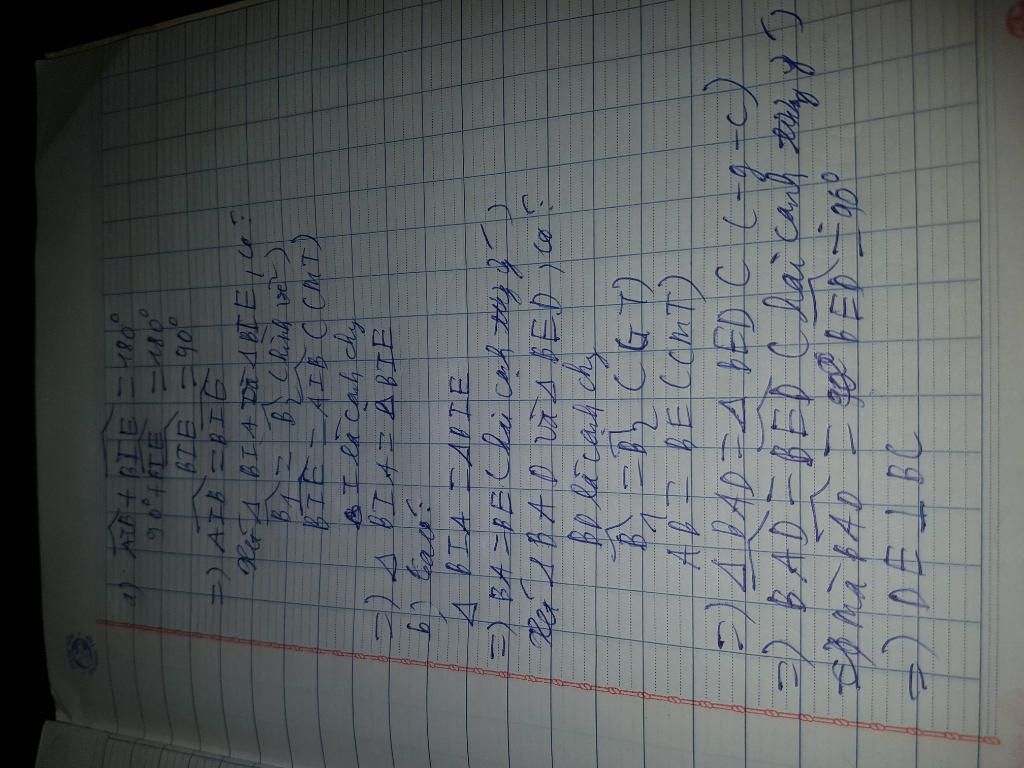 a) AIB + BIE = 180°
90° + BIE = 180°
BIE = 90°
=) AIB = BIE
Xét Δ BIA và Δ BIE, có:
B1 = B2 (hình vẽ)
BIE = AIB (CMT)
BI là cạnh chg
=) Δ BIA = Δ BIE
b)
Δ BIA = Δ BIE
=) BA = BE (hai cạnh)
Xét Δ BAD và Δ BED, có:
BD là cạnh chg
B1 = B2 (GT)
AB = BE (CMT)
=) Δ BAD = Δ BED (c-g-c)
=) BAD = BED (hai cạnh)
mà BAD = 90° BED = 90°
=) DE ⊥ BC